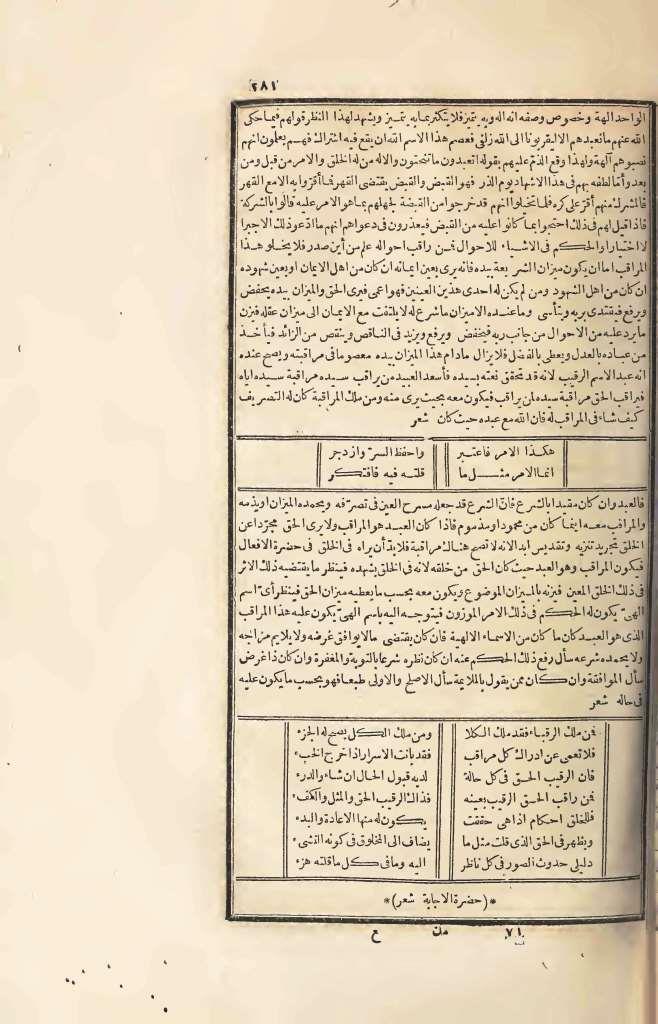 ٢٨١
الواحد الهة وخصوص وصفه انه اله وبه يتميز فلا يتكثر بما به يتميز ويشهد لهذا النظر قولهم فيما حكى
الله عنهم ما نعبدهم الا ليقربونا الى الله زلفى فعصم هذا الاسم الله ان يقع فيه اشتراك فهم يعلمون انهم
نصبوهم آلهة ولهذا وقع الذم عليهم بقوله أتعبدون ما تنحتون والاله من له الخلق والامر من قبل ومن
بعد وأما لطفه بهم في هذا الاشهاد يوم الذر فهو القبض والقبض يقتضى القهر فما أقروا به الا مع القهر
فالمشرك منهم أقر على كره فلما تخيلوا انهم قد خرجوا من القبضة لجهلهم بما هو الامر عليه قالوا بالشركة
فاذا قيل لهم فى ذلك احتجوا بما كانوا عليه من القبض فيعذرون فى دعواهم انهم ما ادعوا ذلك الا جبرا
لا اختيارا والحكم فى الاشياء للاحوال فمن راقب احواله علم من أين صدر فلا يخلو هذا
المراقب اما ان يكون ميزان الشريعة بيده فانه يرى بعين ايمانه ان كان من اهل الايمان او بعين شهوده
ان كان من اهل الشهود ومن لم يكن له احدى هذين العينين فهو اعمى فيرى الحق والميزان بيده يخفض
ويرفع فيقتدى بربه ويتأسى وما عنده الا ميزان ما شرع له لا يلتفت مع الايمان الى ميزان عقله فيزن
ما يرد عليه من الاحوال من جانب ربه فيخفض ويرفع ويزيد فى الناقص وينقص من الزائد فيأخذ
من عباده بالعدل ويعطى بالفضل فلا يزال مادام هذا الميزان بيده معصوما فى مراقبته ويصح عنده
انه عبد الاسم الرقيب لانه قد تحقق نعته بسيده فأسعد العبيد من يراقب سيده مراقبة سيده اياه
فيراقب الحق مراقبة سيده لمن يراقب فيكون معه بحيث يرى منه ومن ملك المراقبة كان له التصريف
كيف شاء فى المراقب له فان الله مع عبده حيث كان شعر
هكذا الامر فاعتبر واحفظ السر وازدجر
انما الامر مثل ما قلته فيه فافتكر
فالعبد وان كان مقيدا بالشرع فان الشرع قد جعله مسرح العين فى تصرفه ويحمده الميزان او يذمه
والمراقب معه اينما كان من محمود او مذموم فاذا كان العبد هو المراقب ولا يرى الحق مجردا عن
الخلق تجريد تنزيه وتقديس ابدا لانه لا تصح هناك مراقبة فلا بد أن يراه فى الخلق فى حضرة الافعال
فيكون المراقب وهو العبد حيث كان الحق من خلقه لانه فى الخلق يشهده فينظر ما يقتضيه ذلك الاثر
فى ذلك الخلق المعين فيزنه بالميزان الموضوع ويكون معه بحسب ما يعطيه ميزان الحق فينظر أى اسم
الهى يكون له الحكم فى ذلك الامر الموزون فيتوجه اليه باسم الهى يكون عليه هذا المراقب
الذى هو العبد كان ما كان من الاسماء الالهية فان كان يقتضى ما لا يوافق غرضه ولا يلايم مزاجه
ولا يحمده شرعه سأل رفع ذلك الحكم عنه ان كان نظره شرعا بالتوبة والمغفرة وان كان ذا غرض
سأل الموافقة وان كان ممن يقول بالملايمة سأل الاصلح والاولى طبعا فهو بحسب ما يكون عليه
فى حاله شعر
فمن ملك الرقباء فقد ملك الكلا ومن ملك الكل يصح له الجزء
فلا تعمى عن ادراك كل مراقب فقد بانت الاسرار اذ اخرج الخبء
فان الرقيب الحق فى كل حالة لديه قبول الحال ان شاء والدرء
فمن راقب الحق الرقيب بعينه فذاك الرقيب الحق والمثل والكفء
فللخلق احكام اذا هى حققت يكون له منها الاعادة والبدء
ويظهر فى الحق الذى قلت مثل ما يضاف الى المخلوق فى كونه النشء
دليلى حدوث الصور فى كل ناظر اليه وما فى كل ما قلته هزء
*(حضرة الاجابة شعر)*
٧١ مك ع